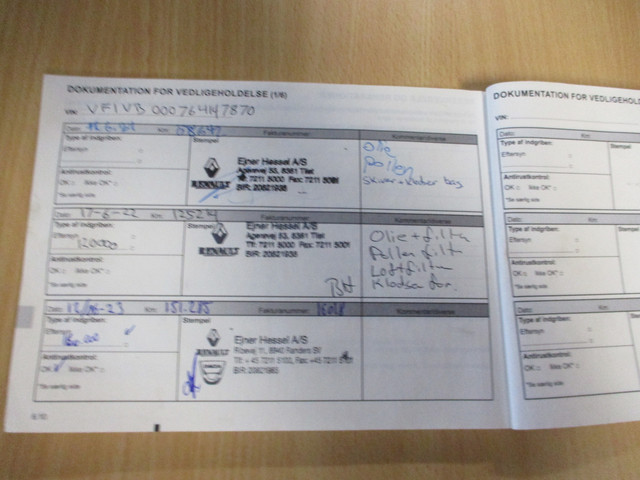 DOKUMENTATION FOR VEDLIGEHOLDELSE (1/6)
VIN: VF1VB 000764147870
Dato: Km: Fakturanummer: Kommentar/diverse
Type af indgriben: Stempel
Eftersyn
Antirustkontrol:
OK □ Ikke OK* □
*Se særlig side
RENAULT
Ejner Hessel A/S
Agerøvej 53, 8381 Tilst
Tlf: 7211 5000 Fax: 7211 5001
BIR: 20821938
Olie
Pollen
Dato: 17-6-22 Km: 12524 Fakturanummer: Kommentar/diverse
Type af indgriben: Stempel
Eftersyn
120000
Antirustkontrol:
OK □ Ikke OK* □
*Se særlig side
RENAULT
Ejner Hessel A/S
Agerøvej 53, 8381 Tilst
Tlf: 7211 5000 Fax: 7211 5001
BIR: 20821938
BH
Olie + filter
Pollen filter
Luftfilter
Klodser for.
Dato: 12/06-23 Km: 151.285 Fakturanummer: Kommentar/diverse
Type af indgriben: Stempel
Eftersyn
Antirustkontrol:
OK Ikke OK* □
*Se særlig side
RENAULT
DACIA
Ejner Hessel A/S
8940 Randers SV
Tlf: + 45 7211 5100, Fax: +45 7211 5101
6.10
DOKUMENTATION FOR VEDLIGEHOLD
VIN:
Dato: Km:
Type af indgriben:
Eftersyn
Antirustkontrol:
OK □ Ikke OK* □
*Se særlig side
Dato:
Type af indgriben:
Eftersyn
Antirustkontrol:
OK □ Ikke OK* □
*Se særlig side
Dato: Km:
Type af indgriben:
Eftersyn
Antirustkontrol:
OK □ Ikke OK* □
*Se særlig side